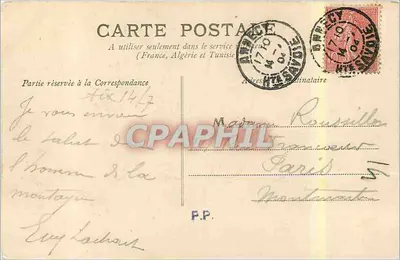 CARTE POSTALE
A utiliser seulement dans le service
(France, Algérie et Tunisie
Partie réservée à la Correspondance
Aix 14/7
Je vous envoie
le salut de
l'homme de la
montagne
Madame Roussillon
Paris
Montmartre
P.P.
ANNECY
17 10
14 -7
04
HTE SAVOIE
ANNECY
17 10
14 -7
04
HTE SAVOIE
CPAPHIL